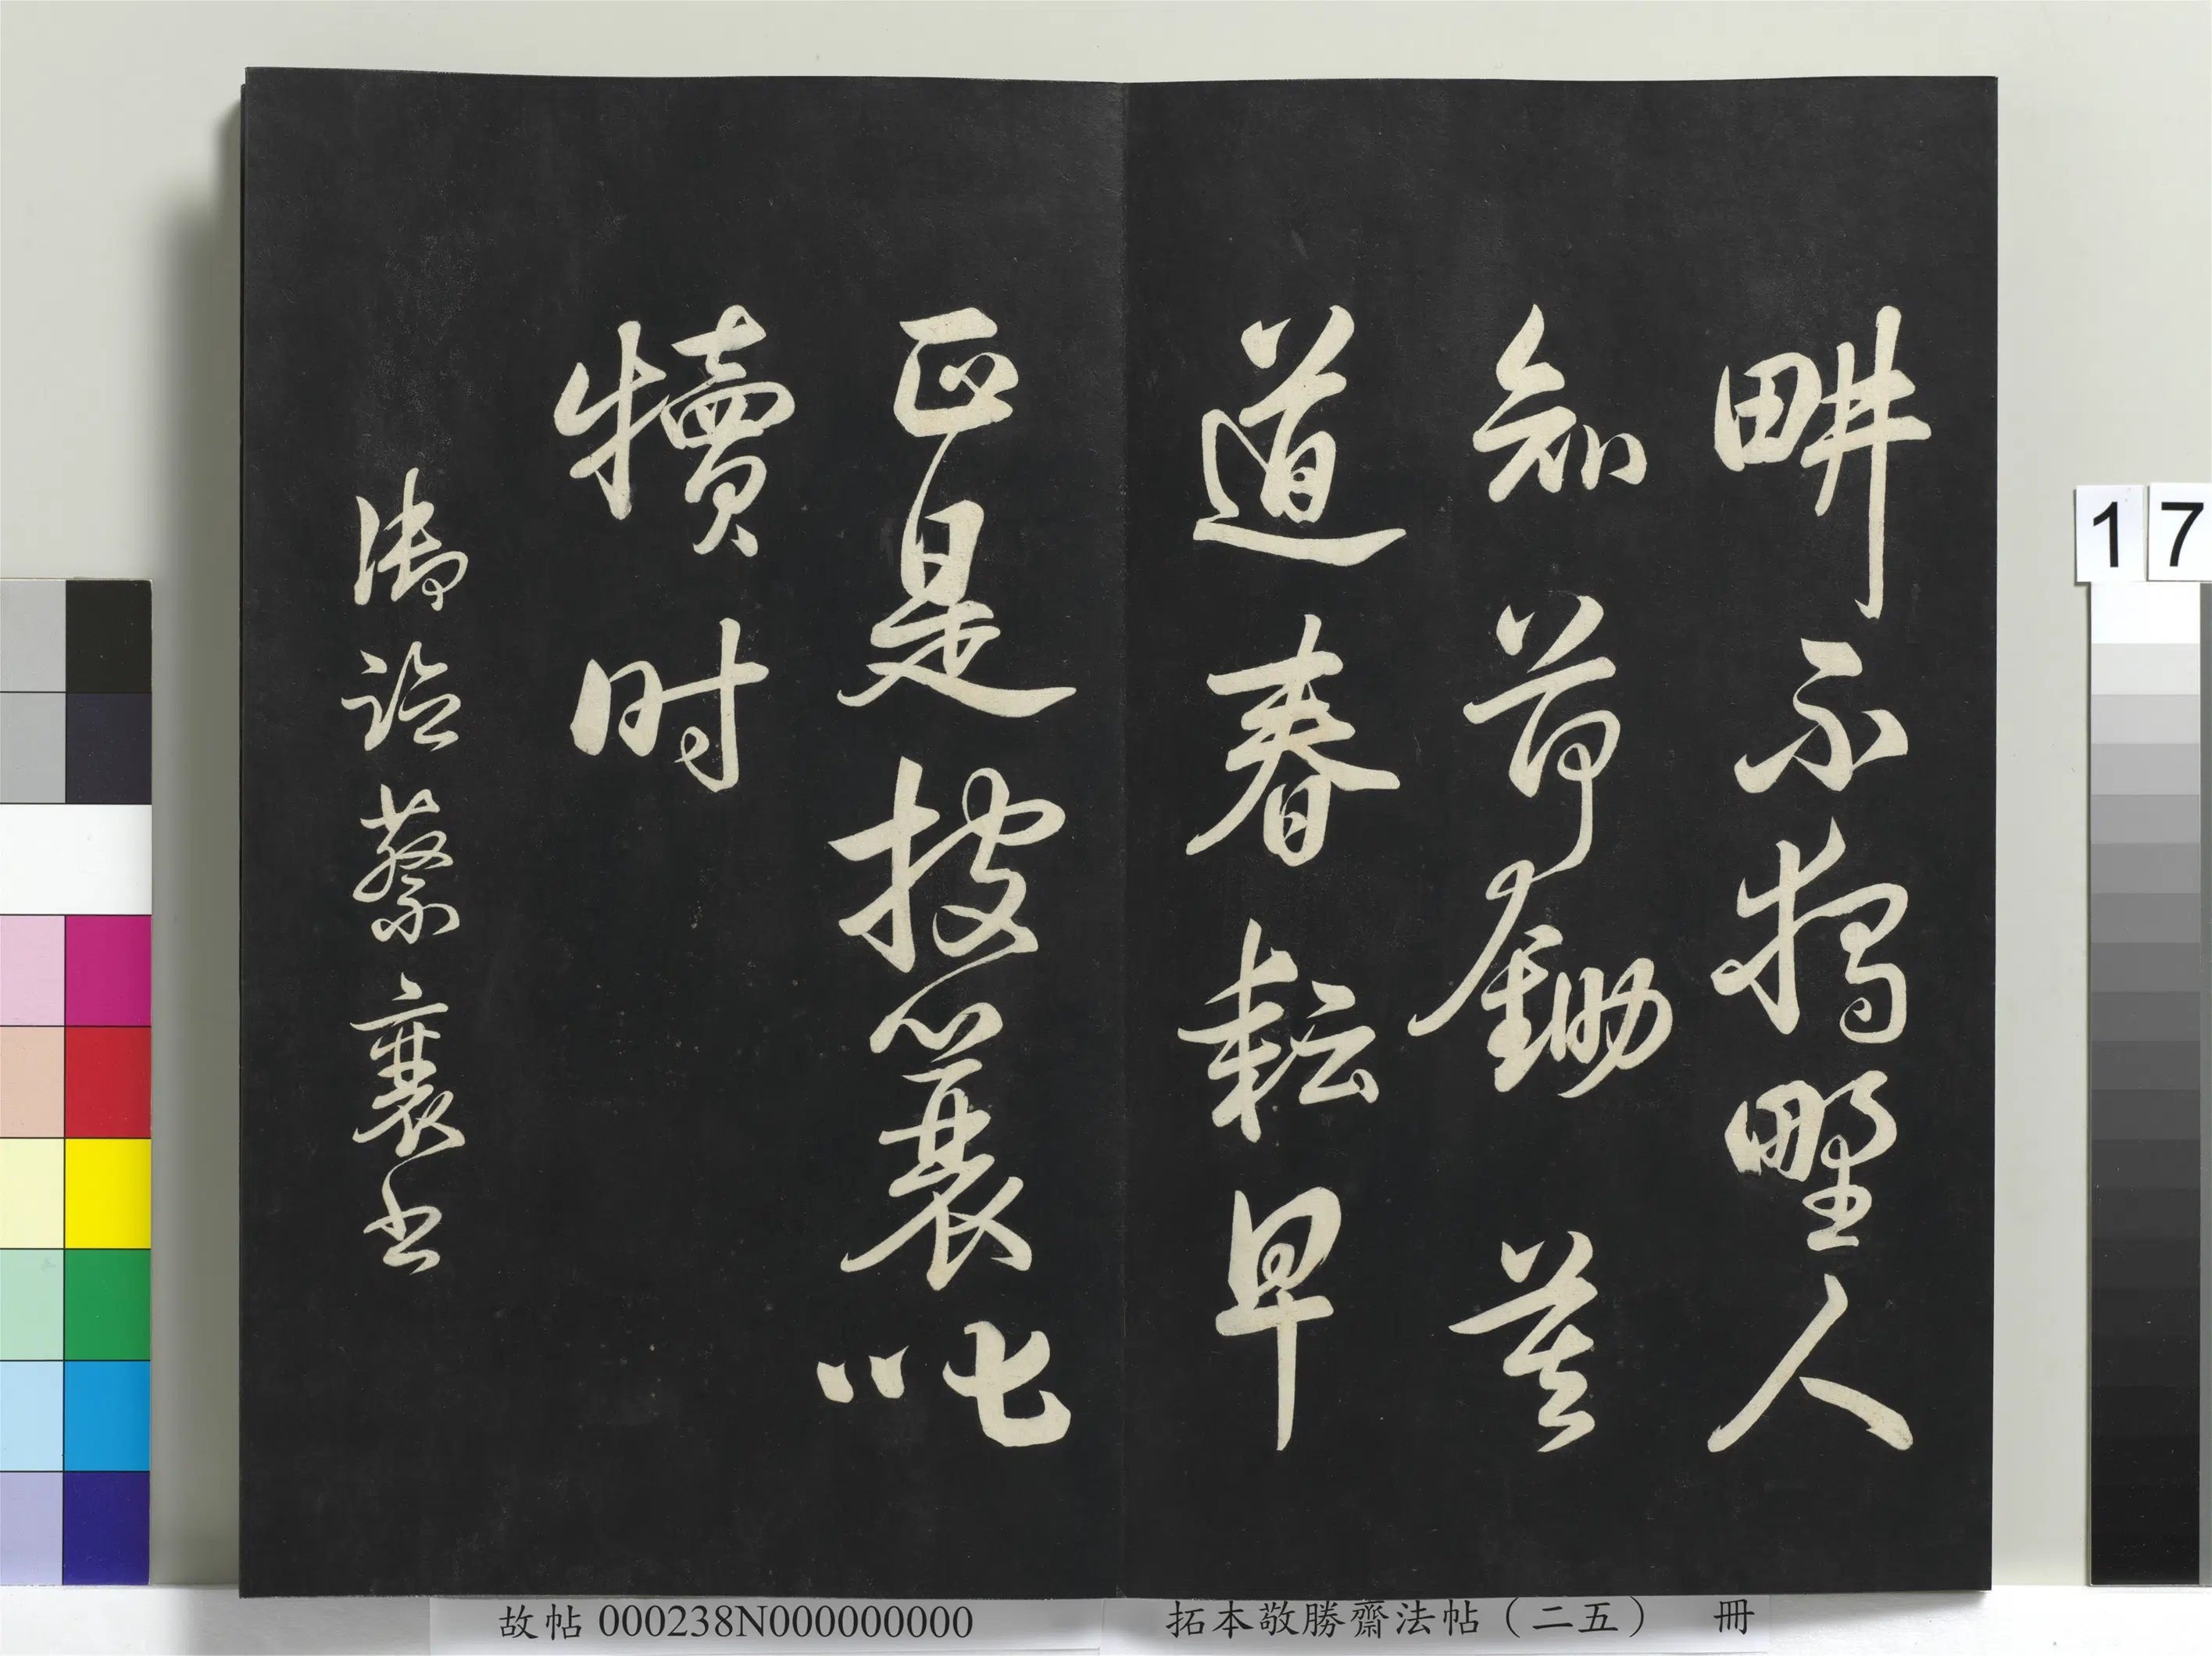 畊不獨野人
知荷鋤莫
道春耘早
正是披蓑叱
犢時
蔡襄书
17
故帖 000238N000000000
拓本敬勝齋法帖（二五） 冊